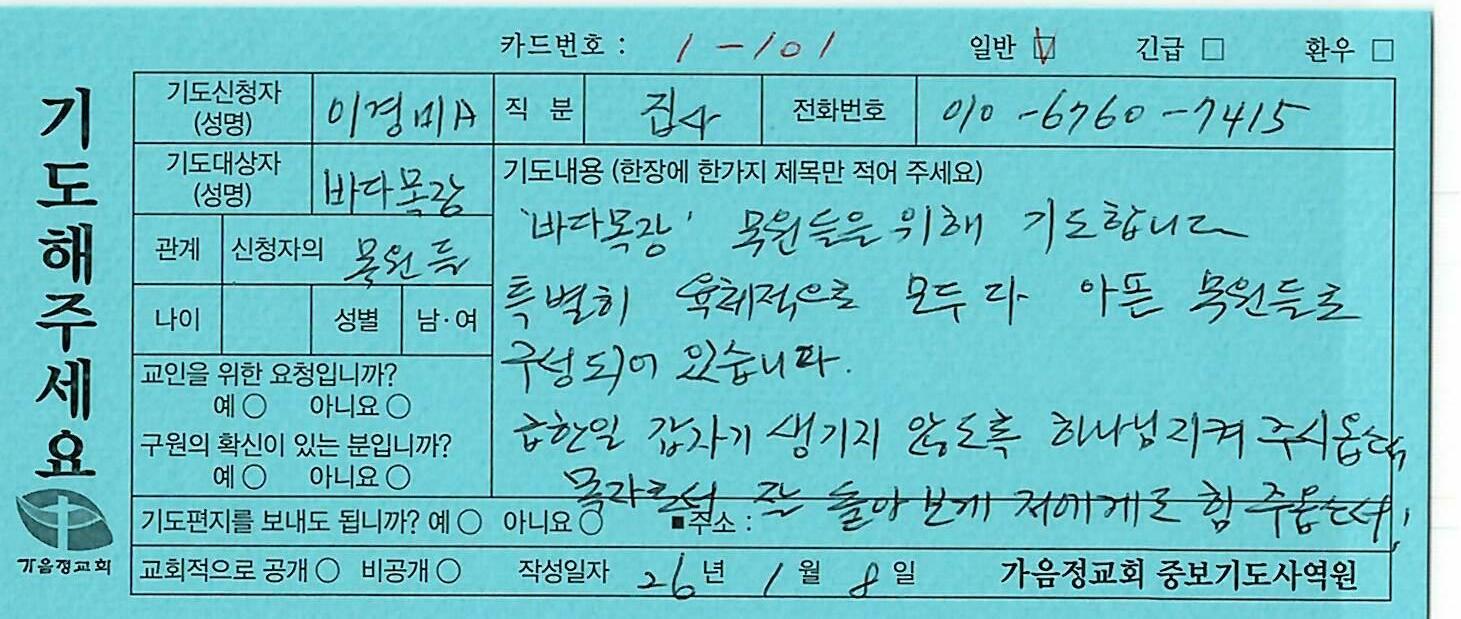 카드번호 : 1-101 일반 ☑ 긴급 □ 환우 □
기도해주세요
기도신청자 (성명) 이경미A 직 분 집사 전화번호 010-6760-7415
기도대상자 (성명) 바다목장
관계 신청자의 목원들
나이 성별 남·여
교인을 위한 요청입니까?
예 ○ 아니요 ○
구원의 확신이 있는 분입니까?
예 ○ 아니요 ○
기도내용 (한장에 한가지 제목만 적어 주세요)
'바다목장' 목원들을 위해 기도합니다
특별히 육체적으로 모두 다 아픈 목원들로
구성되어 있습니다.
급한일 갑자기 생기지 않도록 하나님 지켜 주시옵소서,
목자로서 잘 돌아보게 저에게도 힘 주옵소서,
기도편지를 보내도 됩니까? 예 ○ 아니요 ○ ■주소 :
교회적으로 공개 ○ 비공개 ○ 작성일자 26년 1월 8일 가음정교회 중보기도사역원
가음정교회